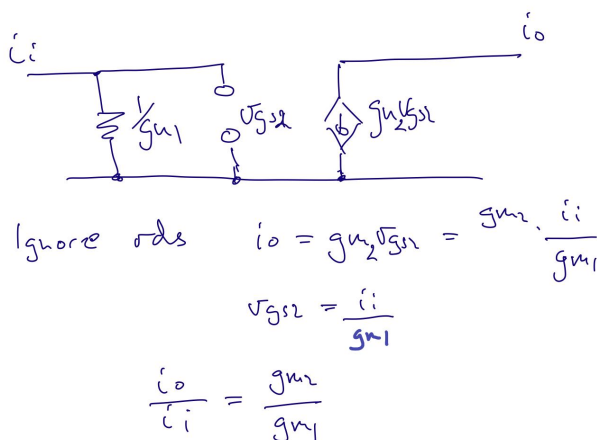 ii
io
1/gm1
vgs2
gm2vgs2
Ignore rds io = gm2vgs2 = gm2 · ii/gm1
vgs2 = ii/gm1
io/ii = gm2/gm1